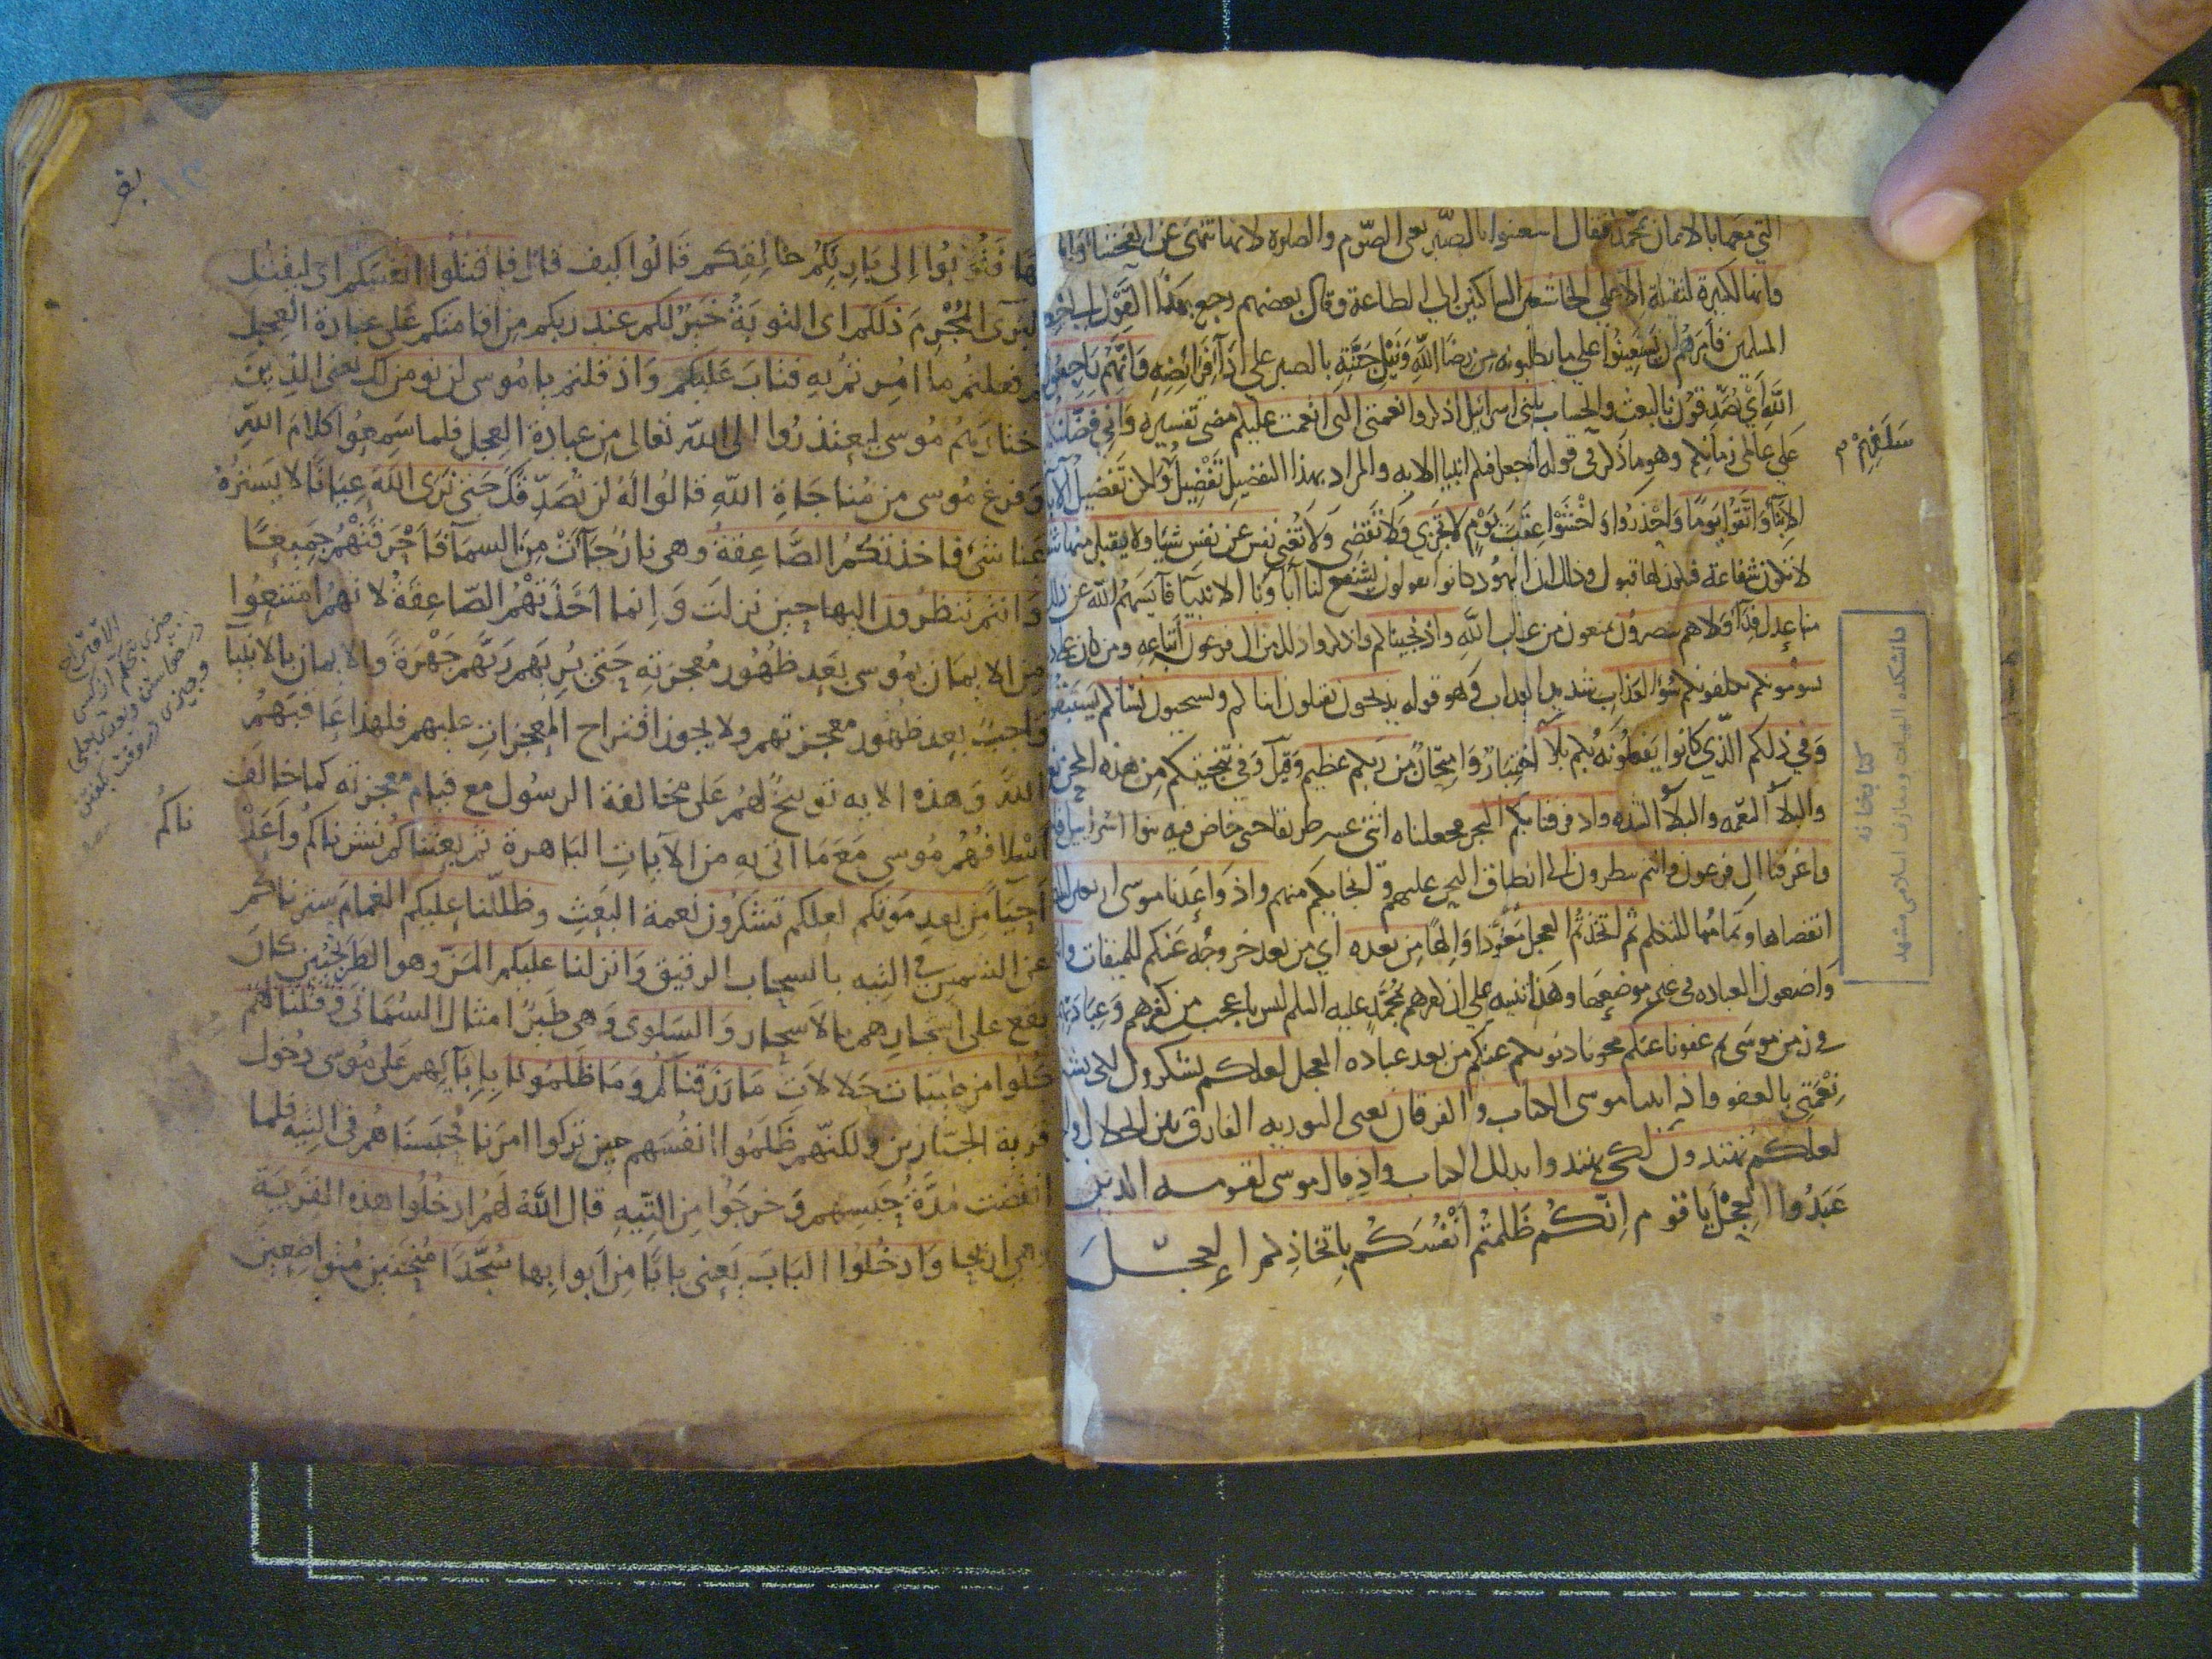 التي معها بالايمان بمحمد فقال استعينوا بالصبر يعني الصّوم والصلوة لانها تنهى عن الفحشاء
وانها لكبيرة لثقيلة الا على الخاشعين الساكنين الى الطاعة وقال بعضهم رجع بهذا القول الى
المسلمين فامرهم ان يستعينوا على ما يطلبونه من رضا الله ونيل جنته بالصبر على ادآ فرائضه وانهم
الله اي يصدقون بالبعث والحساب يا بني اسرائيل اذكروا نعمتي التي انعمت عليكم مضى تفسيره واني فضلتكم
على عالمي زمانكم وهو ما ذكر في قوله اذ جعل فيكم انبيا الايه والمراد بهذا التفضيل
سلفهم م
واتقوا يوما واحذروا واخشوا عقاب يوم لا تجزي ولا تقضي ولا تغني نفس عن نفس شيا ولا يقبل منها
لا تكون شفاعة فيكون لها قبول وذلك ان اليهود كانوا يقولون يشفع لنا آباؤنا الانبيا فآيسهم الله عن ذلك
منها عدل فدا ولا هم ينصرون يمنعون من عذاب الله واذ نجيناكم واذكروا ذلك من ال فرعون اتباعه ومن كان على
يسومونكم يكلفونكم سوء العذاب شديد العذاب وهو قوله يذبحون يقتلون ابناكم ويستحيون نساكم
وفي ذلكم الذي كانوا يفعلونه بكم بلآ اختبار وامتحان من ربكم عظيم وقيل وفي تنجيتكم من هذه المحن
والبلآ النعمه والبلآ الشده واذ فرقنا بكم البحر فجعلناه اثنتي عشر طريقا حتى خاض فيه بنوا اسرائيل
واغرقنا ال فرعون وانتم تنظرون الى انطباق البحر عليهم وانجايكم منهم واذ واعدنا موسى اربعين
انقضاها وتمامها للتكلم ثم اتخذتم العجل معبودا والها من بعده اي من بعد خروجه عنكم للميقات
واضعون العباده في غير موضعها وهذا تنبيه على ان كفرهم بمحمد عليه السلم ليس باعجب من كفرهم وعبادتهم
في زمن موسى ثم عفونا عنكم محونا ذنوبكم عنكم من بعد عباده العجل لعلكم تشكرون لكي
نعمتي بالعفو واذ اتينا موسى الكتاب والفرقان يعني التوريه الفارق بين الحلال
لعلكم تهتدون لكي تهتدوا بذلك الكتاب واذ قال موسى لقومه الذين
عبدوا العجل يا قوم انكم ظلمتم انفسكم باتخاذكم العجل
دانشكده الهيات ومعارف اسلامى مشهد
كتابخانه
بقر
فتوبوا الى بارئكم خالقكم قالوا كيف قال فاقتلوا انفسكم اي ليقتل
البرى المجرم ذلكم اى التوبة خير لكم عند ربكم من اقامتكم على عبادة العجل
ثم فعلتم ما امرتم به فتاب عليكم واذ قلتم يا موسى لن نومن لك يعنى الذين
اختارهم موسى ليعتذروا الى الله تعالى من عبادة العجل فلما سمعوا كلام الله
وفرغ موسى من مناجاة الله قالوا له لن نصدقك حتى نرى الله عيانا لا يستره
عنا شئ فاخذتكم الصاعقة وهى نار جآت من السمآ فاحرقتهم جميعا
وانتم تنظرون اليها حين نزلت وانما اخذتهم الصاعقة لانهم امتنعوا
من الايمان بموسى بعد ظهور معجزته حتى يريهم ربهم جهرة والايمان بالانبيا
واجب بعد ظهور معجزتهم ولا يجوز اقتراح المعجزات عليهم فلهذا عاقبهم
الله وهذه الايه توبيخ لهم على مخالفة الرسول مع قيام معجزته كما خالف
اسلافهم موسى مع ما اتى به من الآيات الباهرة ثم بعثناكم نشرناكم واعد
ناكم
احيآ من بعد موتكم لعلكم تشكرون نعمة البعث وظللنا عليكم الغمام سترناكم
عن الشمس في التيه بالسحاب الرقيق وانزلنا عليكم المن وهو الطرنجبين كان
يقع على اشجارهم بالاسحار والسلوى وهى طير امثال السمانى وقلنا لهم
كلوا من طيبات حلالات ما رزقناكم وما ظلمونا بابآئهم على موسى دخول
قرية الجبارين ولكنهم ظلموا انفسهم حين تركوا امرنا فحبسناهم في التيه فلما
انقضت مدة حبسهم وخرجوا من التيه قال الله لهم ادخلوا هذه القرية
وهى اريحا وادخلوا الباب يعنى بابا من ابوابها سجدا منحنين متواضعين